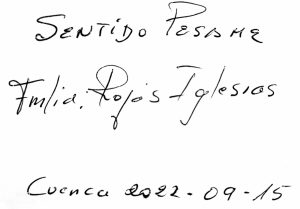 SENTIDO PESAME
Fmlia. Rojas Iglesias
Cuenca 2022-09-15